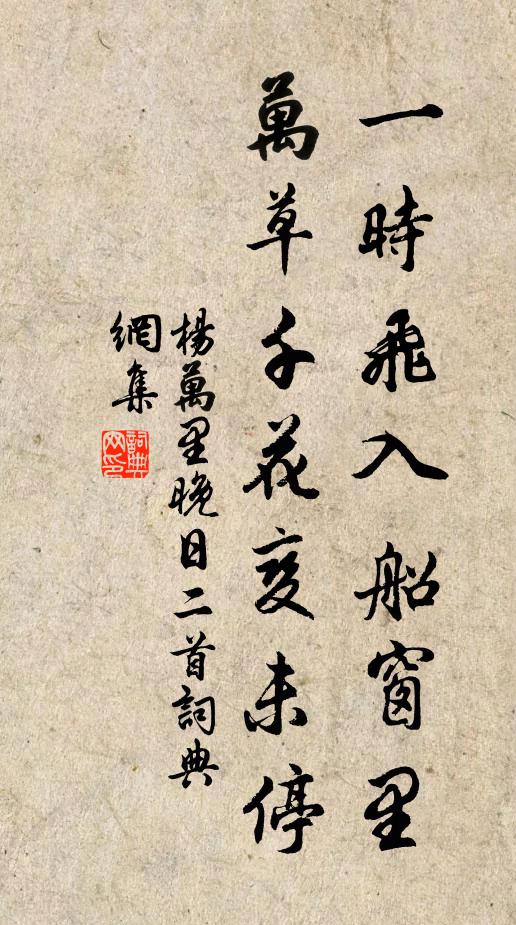 一時飛入船窗里
萬草千花變未停
楊萬里晚日二首詞典
網集
詞典
网印